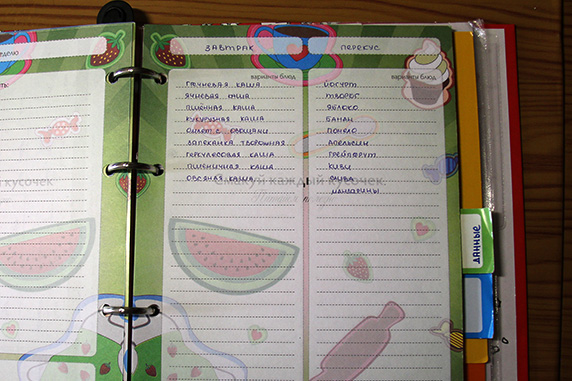 ЗАВТРАК
варианты блюд
ГРЕЧНЕВАЯ КАША
ЯЧНЕВАЯ КАША
ПШЁННАЯ КАША
КУКУРУЗНАЯ КАША
ОМЛЕТ С ОВОЩАМИ
ЗАПЕКАНКА ТВОРОЖНАЯ
ГЕРКУЛЕСОВАЯ КАША
ПШЕНИЧНАЯ КАША
ОВСЯНАЯ КАША
ПЕРЕКУС
варианты блюд
ЙОГУРТ
ТВОРОГ
ЯБЛОКО
БАНАН
ПОМЕЛО
АПЕЛЬСИН
ГРЕЙПФРУТ
КИВИ
СЛИВА
МАНДАРИНЫ
Смакуй каждый кусочек.
кусочек
данные